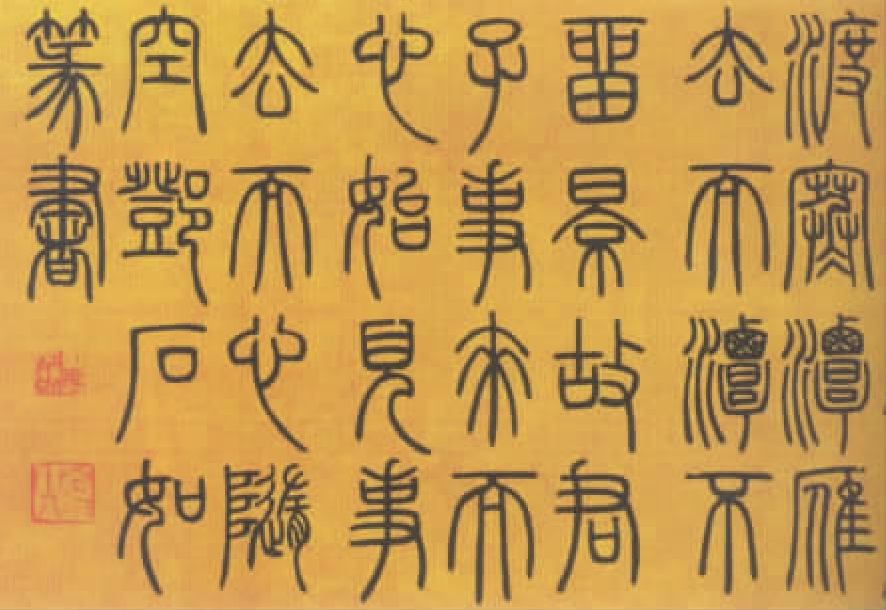 渡寒潭雁
去而潭不
留景故君
子事來而
心始見事
去而心隨
空鄧石如
篆書